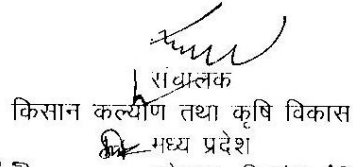 संचालक
किसान कल्याण तथा कृषि विकास
मध्य प्रदेश